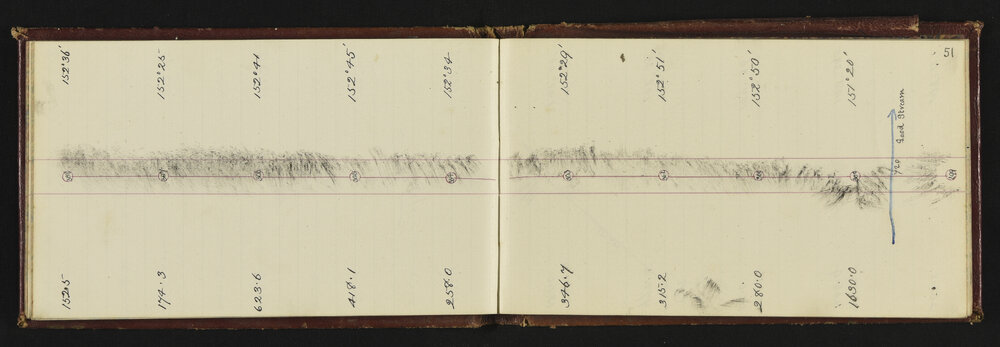 51
152°36'
152°25
152°41
152°45'
152°34
152°29'
152°51'
152°50'
151°20'
Good Stream
920
152.5
174.3
623.6
418.1
258.0
346.7
315.2
280.0
1630.0